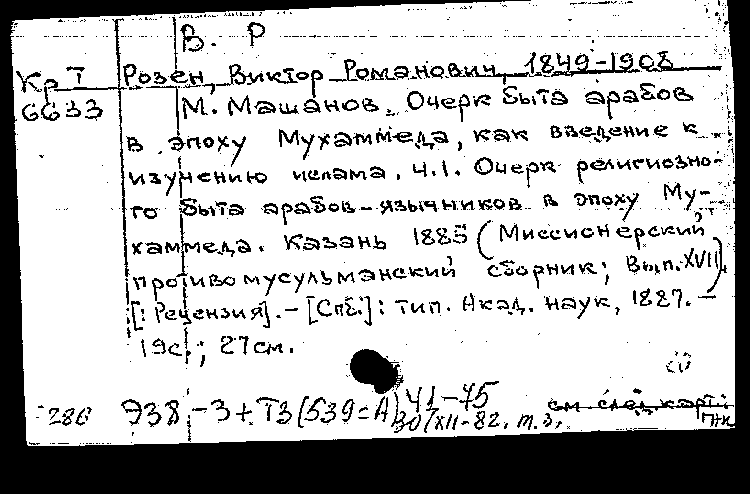 В. Р
Кр Т Розен, Виктор Романович, 1849-1908
6633 М. Машанов. Очерк быта арабов
в эпоху Мухаммеда, как введение к
изучению ислама. ч.1. Очерк религиозно-
го быта арабов-язычников в эпоху Му-
хаммеда. Казань 1885 (Миссионерский
противомусульманский сборник; Вып. XVII).
[: Рецензия]. - [Спб.]: тип. Акад. наук, 1887. -
19с.; 27см.
286 Э38 -3+Т3(539=А) 41-75 см след карт:
30/XII-82. т.3.